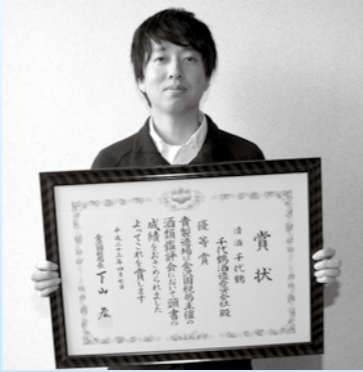 賞状
清酒 千代鶴
千代鶴酒造合資会社殿
優等賞
貴製造場は金沢国税局主催の
酒類鑑評会において頭書の
成績をおさめられました
よってこれを賞します
平成二十三年四月七日
金沢国税局長 下山